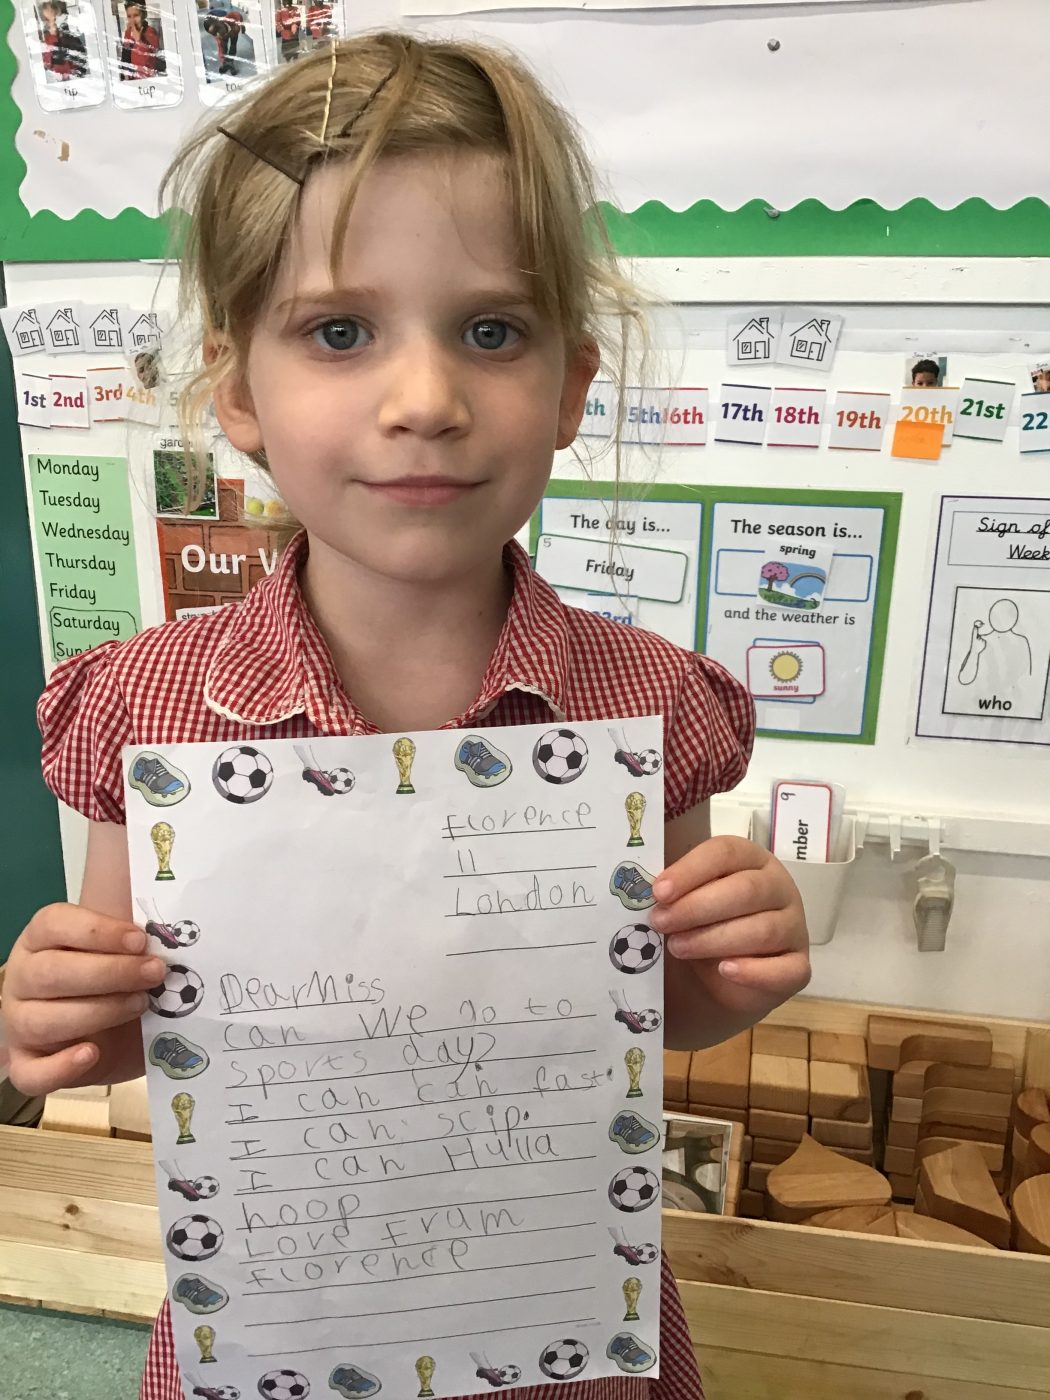 tip
tap
1st 2nd 3rd 4th
16th 17th 18th 19th 20th 21st 22
Monday
Tuesday
Wednesday
Thursday
Friday
Saturday
Our W
The day is...
Friday
The season is...
spring
and the weather is
sunny
Sign of
Week
who
9
mber
Florence
11
London
Dear Miss
can we go to
sports day?
I can can fast.
I can scip.
I can Hulla
hoop
Love Frum
Florence